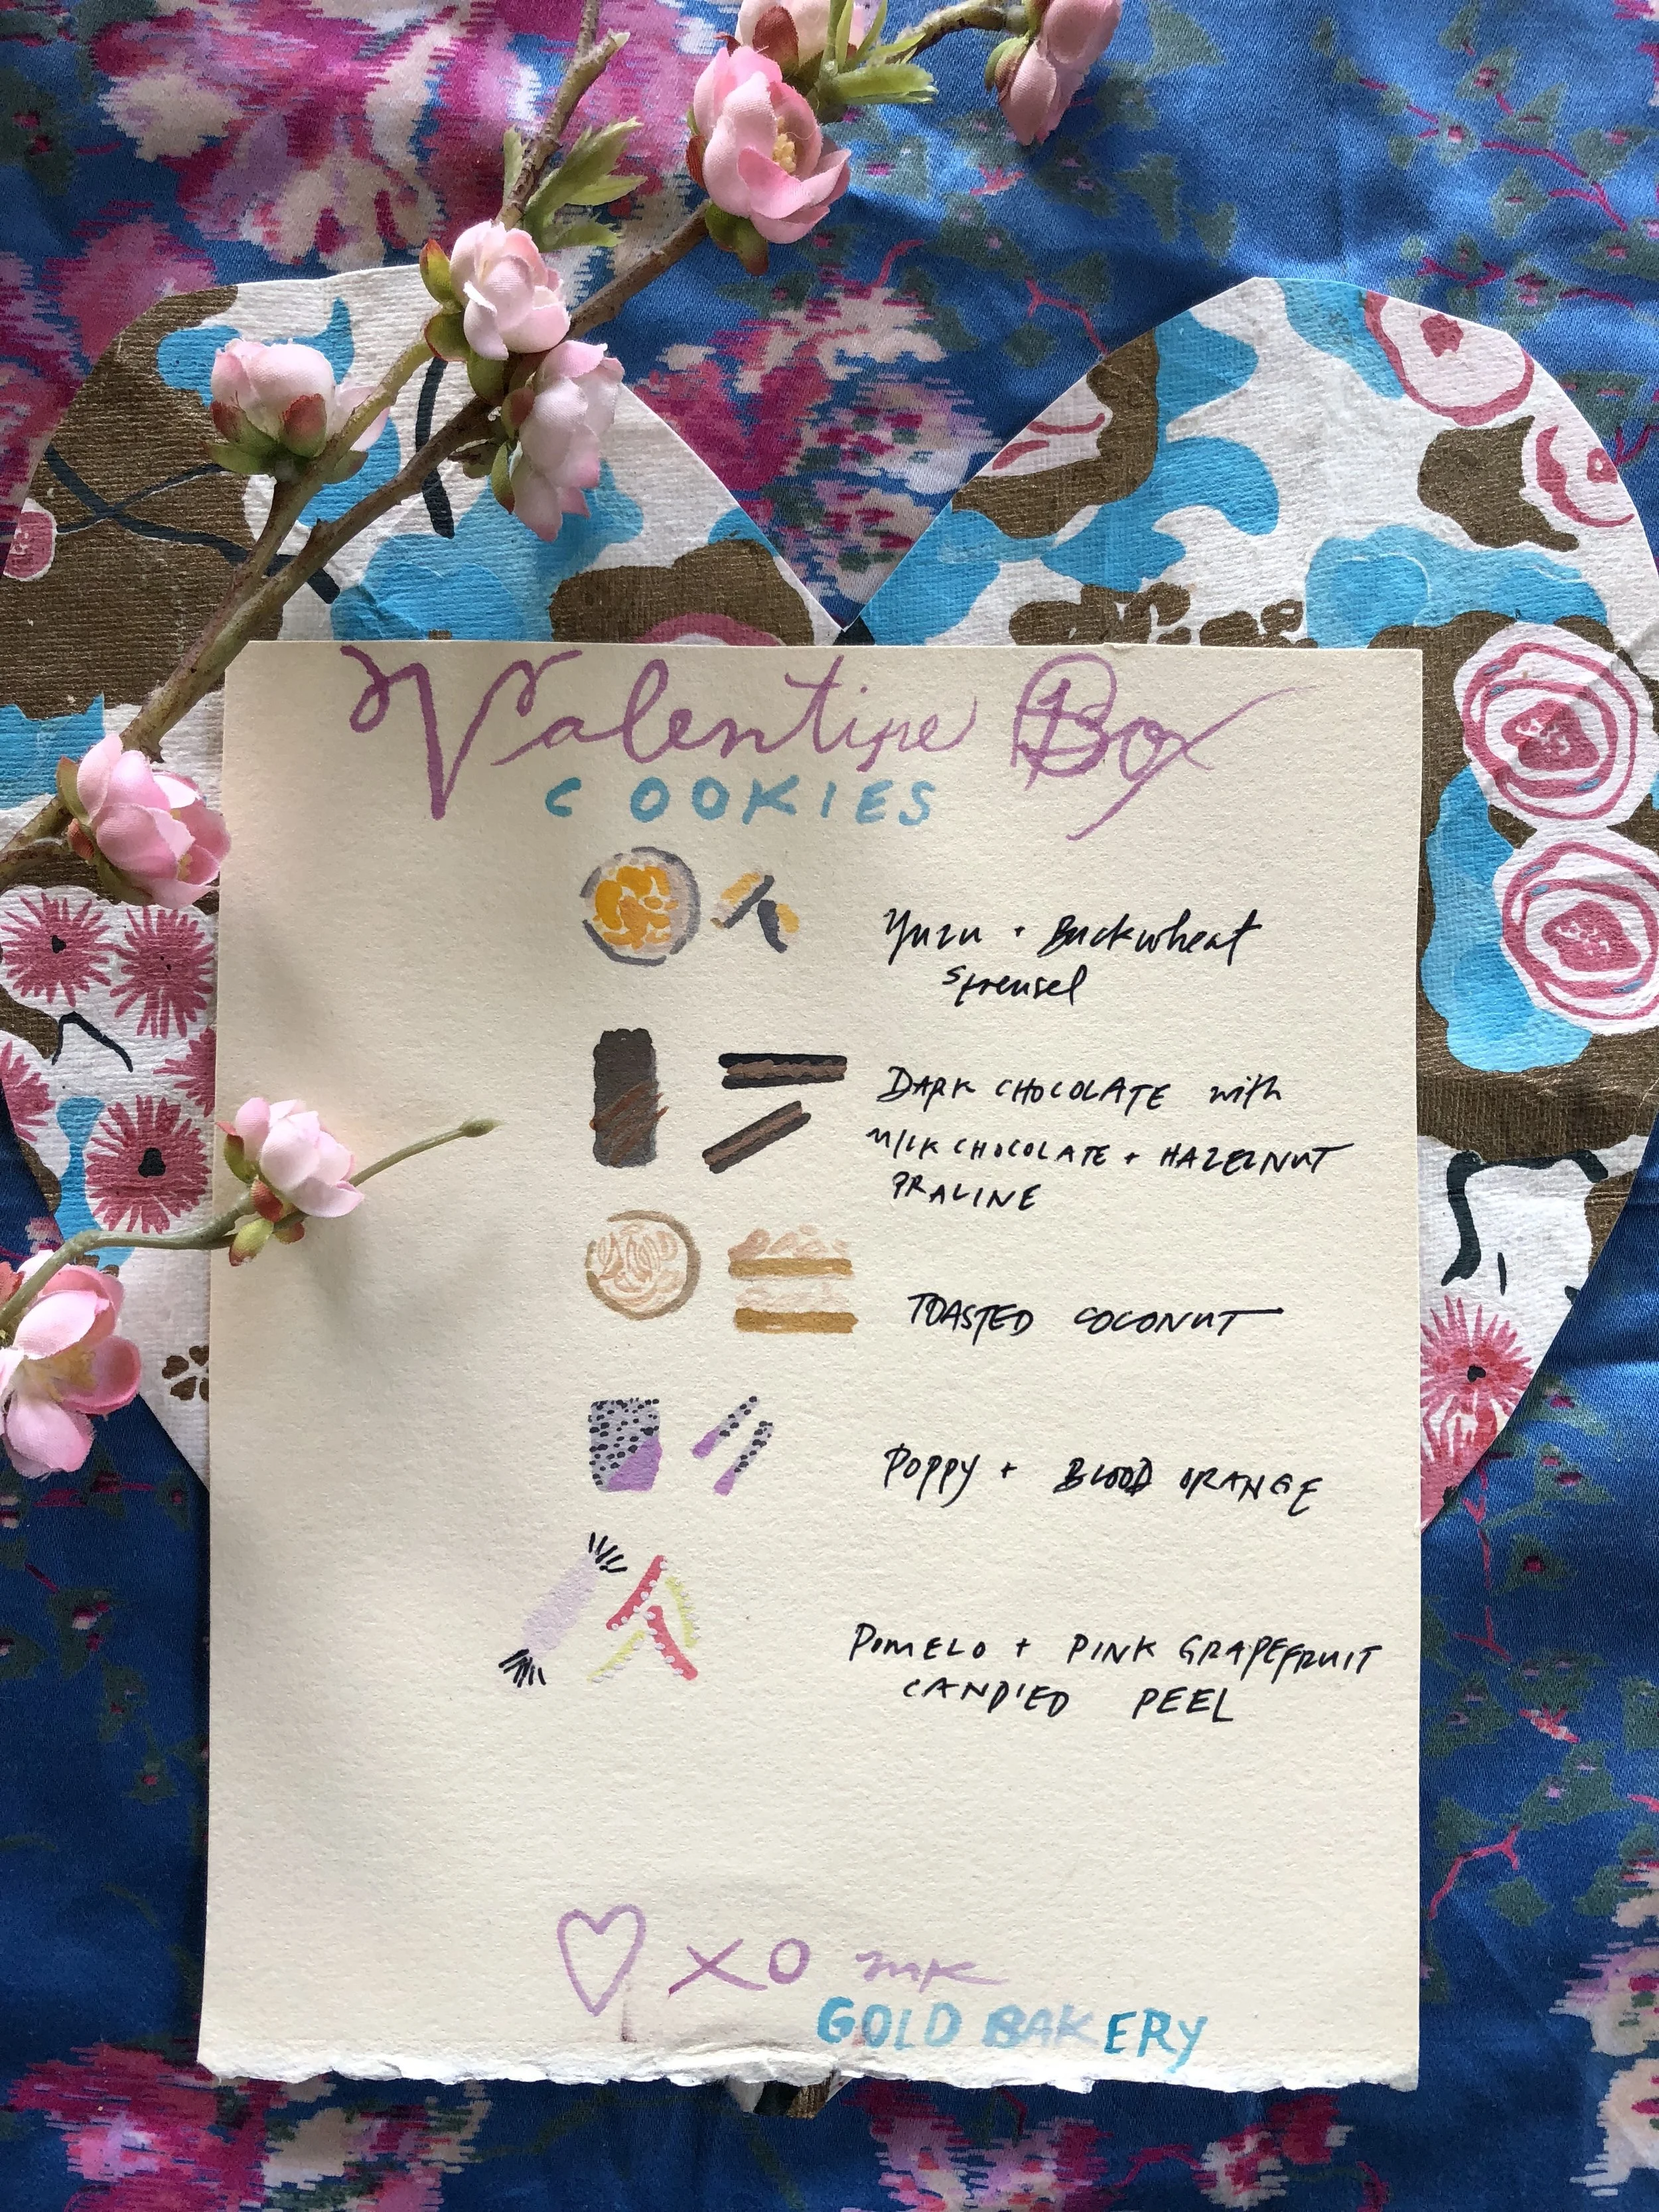 Valentine Box
COOKIES
Yuzu + Buckwheat
Streusel
DARK CHOCOLATE with
MILK CHOCOLATE + HAZELNUT
PRALINE
TOASTED COCONUT
POPPY + BLOOD ORANGE
POMELO + PINK GRAPEFRUIT
CANDIED PEEL
XO mk
GOLD BAKERY